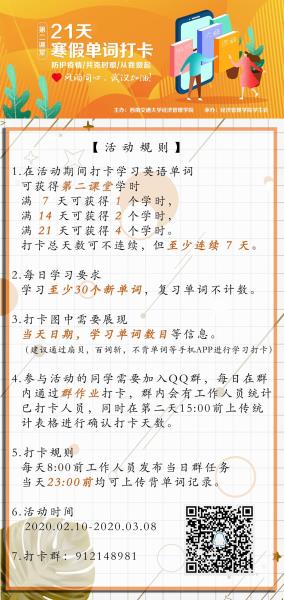 第二课堂
21天
寒假单词打卡
防护疫情/共克时艰/从我做起
同风同心，武汉加油！
主办：西南交通大学经济管理学院 承办：经济管理学院学生会
【活动规则】
1.在活动期间打卡学习英语单词
可获得第二课堂学时
满 7 天可获得 1 个学时，
满 14 天可获得 2 个学时，
满 21 天可获得 4 个学时。
打卡总天数可不连续，但至少连续 7 天。
2.每日学习要求
学习至少30个新单词，复习单词不计数。
3.打卡图中需要展现
当天日期，学习单词数目等信息。
（建议通过扇贝，百词斩，不背单词等手机APP进行学习打卡）
4.参与活动的同学需要加入QQ群，每日在群
内通过群作业打卡，群内会有工作人员统计
已打卡人员，同时在第二天15:00前上传统
计表格进行确认打卡天数。
5.打卡规则
每天8:00前工作人员发布当日群任务
当天23:00前均可上传背单词记录。
6.活动时间
2020.02.10-2020.03.08
7.打卡群：912148981